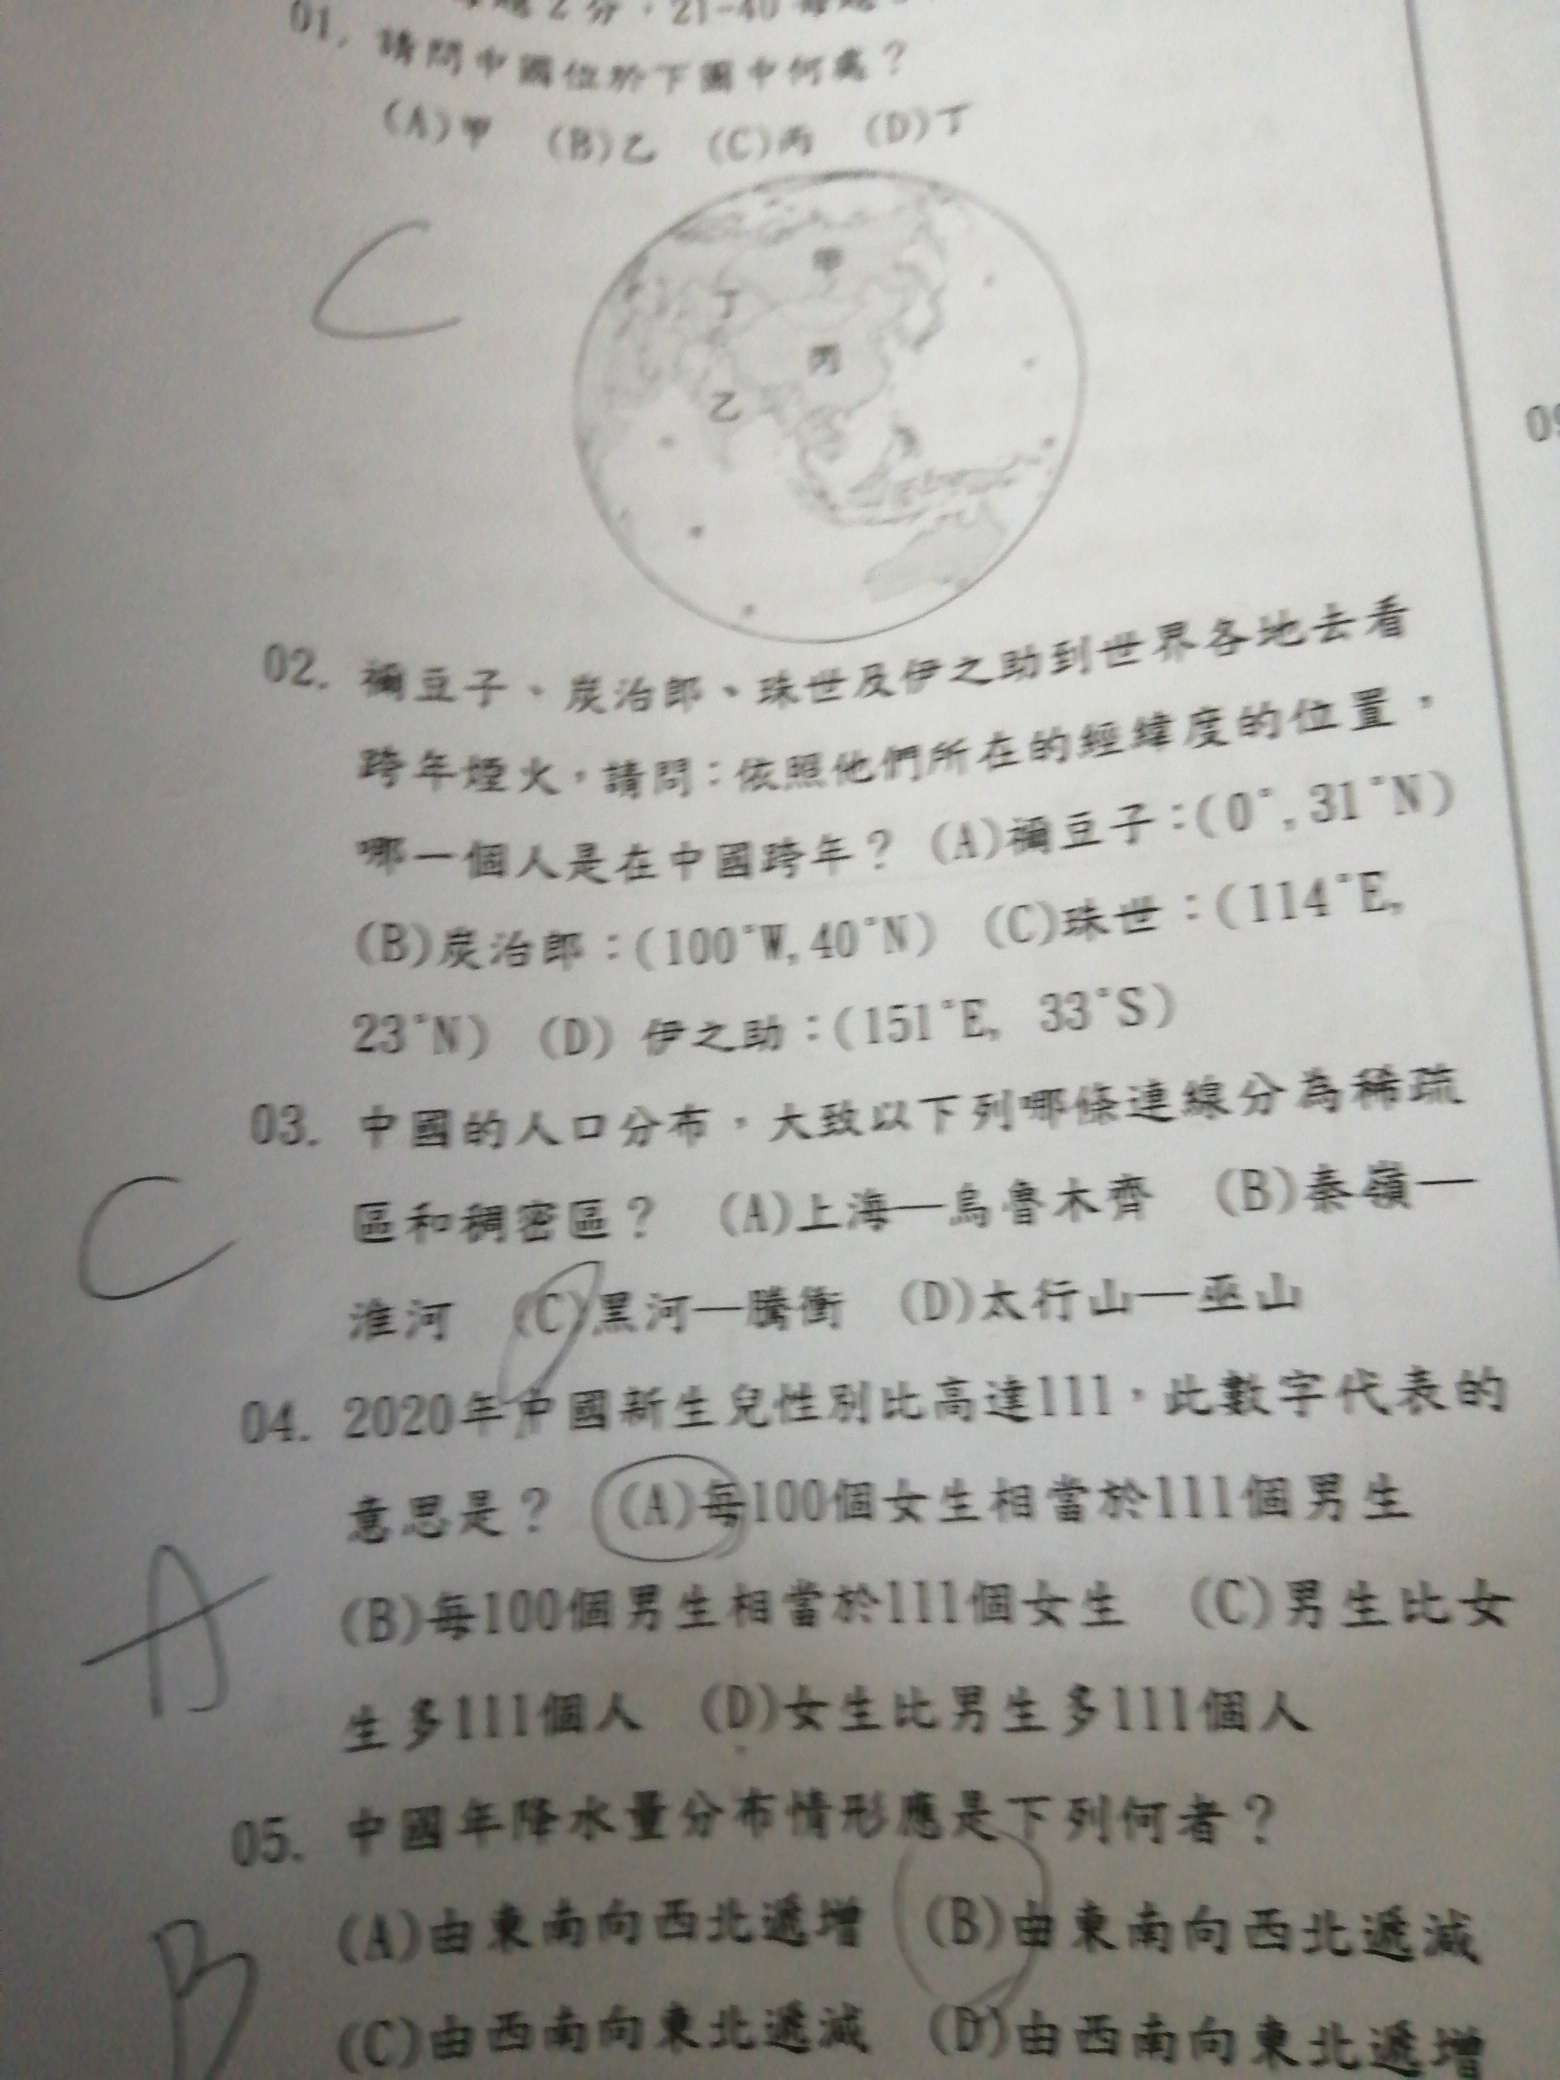 2分，21-40
01. 請問中國位於下圖中何處？
(A)甲 (B)乙 (C)丙 (D)丁
C
甲
丁
丙
乙
02. 禰豆子、炭治郎、珠世及伊之助到世界各地去看
跨年煙火，請問：依照他們所在的經緯度的位置，
哪一個人是在中國跨年？ (A)禰豆子：(0°,31°N)
(B)炭治郎：(100°W,40°N) (C)珠世：(114°E,
23°N) (D) 伊之助：(151°E, 33°S)
03. 中國的人口分布，大致以下列哪條連線分為稀疏
C
區和稠密區？ (A)上海—烏魯木齊 (B)秦嶺—
淮河 (C)黑河—騰衝 (D)太行山—巫山
04. 2020年中國新生兒性別比高達111，此數字代表的
意思是？ (A)每100個女生相當於111個男生
A
(B)每100個男生相當於111個女生 (C)男生比女
生多111個人 (D)女生比男生多111個人
05. 中國年降水量分布情形應是下列何者？
(A)由東南向西北遞增 (B)由東南向西北遞減
B
(C)由西南向東北遞減 (D)由西南向東北遞增